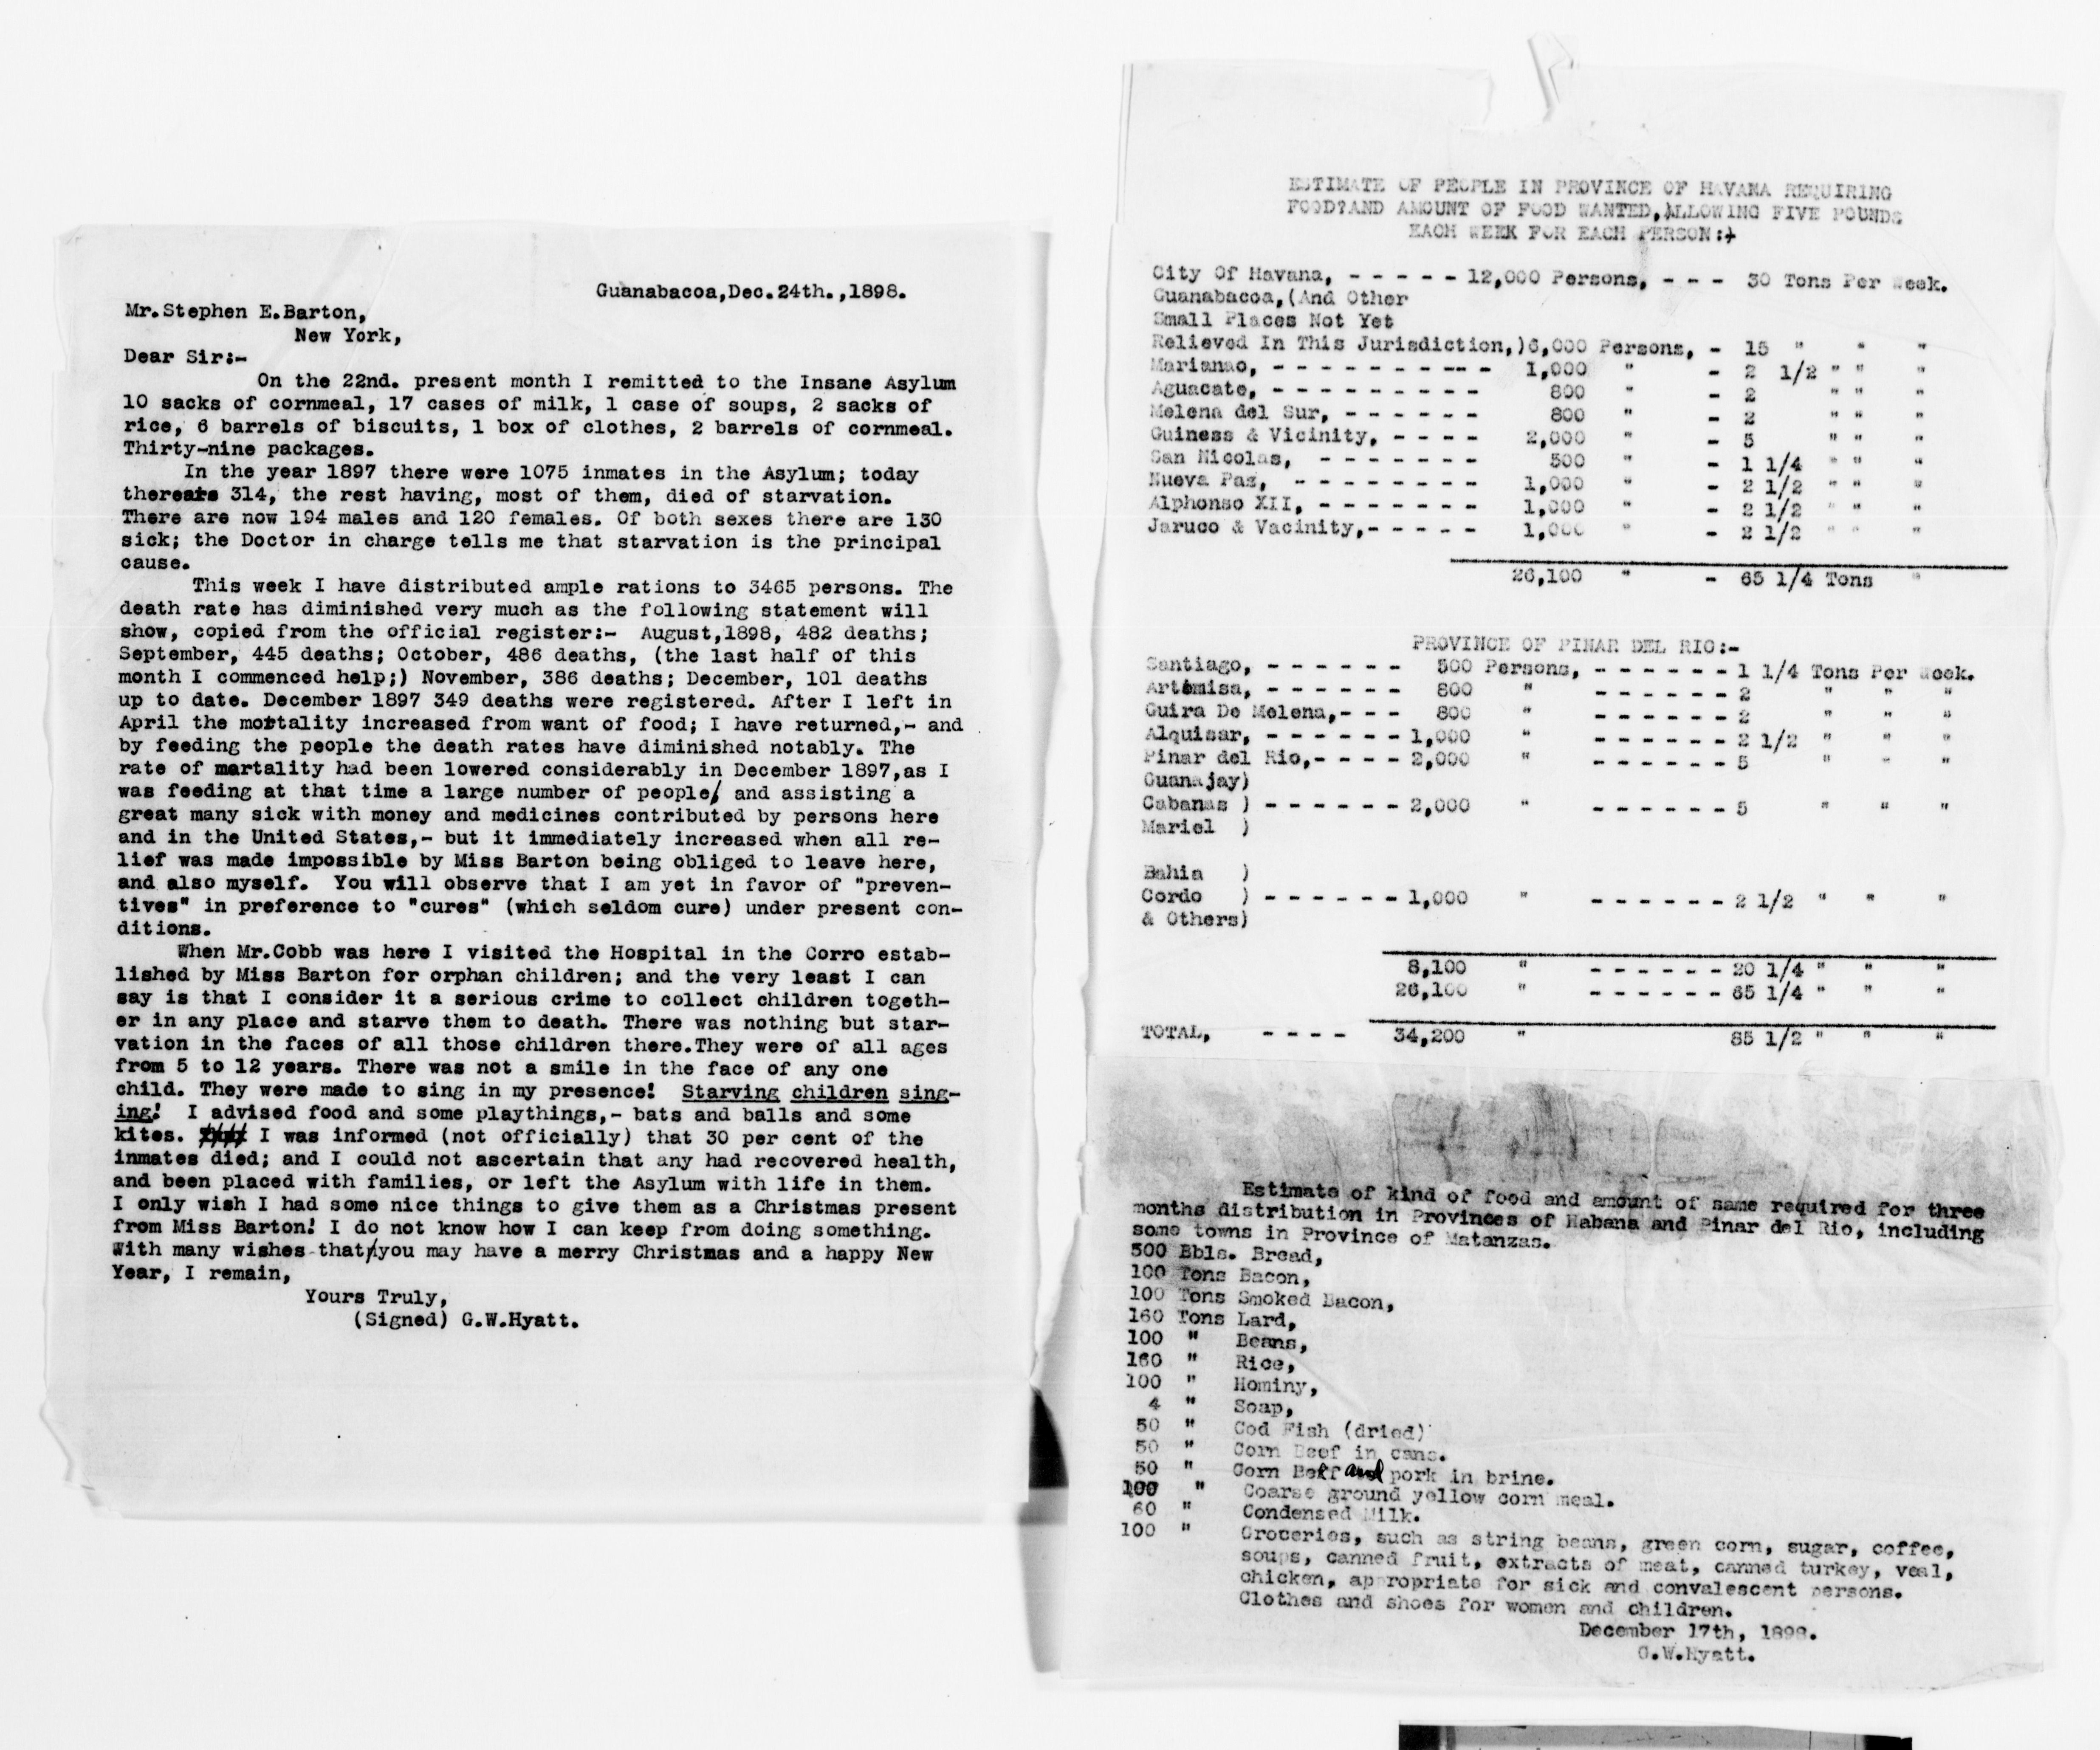 Guanabacoa,Dec.24th.,1898.
Mr.Stephen E.Barton,
New York,
Dear Sir:-
On the 22nd. present month I remitted to the Insane Asylum
10 sacks of cornmeal, 17 cases of milk, 1 case of soups, 2 sacks of
rice, 6 barrels of biscuits, 1 box of clothes, 2 barrels of cornmeal.
Thirty-nine packages.
In the year 1897 there were 1075 inmates in the Asylum; today
there are 314, the rest having, most of them, died of starvation.
There are now 194 males and 120 females. Of both sexes there are 130
sick; the Doctor in charge tells me that starvation is the principal
cause.
This week I have distributed ample rations to 3465 persons. The
death rate has diminished very much as the following statement will
show, copied from the official register:- August,1898, 482 deaths;
September, 445 deaths; October, 486 deaths, (the last half of this
month I commenced help;) November, 386 deaths; December, 101 deaths
up to date. December 1897 349 deaths were registered. After I left in
April the mortality increased from want of food; I have returned,- and
by feeding the people the death rates have diminished notably. The
rate of martality had been lowered considerably in December 1897,as I
was feeding at that time a large number of people, and assisting a
great many sick with money and medicines contributed by persons here
and in the United States,- but it immediately increased when all re-
lief was made impossible by Miss Barton being obliged to leave here,
and also myself. You will observe that I am yet in favor of "preven-
tives" in preference to "cures" (which seldom cure) under present con-
ditions.
When Mr.Cobb was here I visited the Hospital in the Corro estab-
lished by Miss Barton for orphan children; and the very least I can
say is that I consider it a serious crime to collect children togeth-
er in any place and starve them to death. There was nothing but star-
vation in the faces of all those children there.They were of all ages
from 5 to 12 years. There was not a smile in the face of any one
child. They were made to sing in my presence! Starving children sing-
ing! I advised food and some playthings,- bats and balls and some
kites. I was informed (not officially) that 30 per cent of the
inmates died; and I could not ascertain that any had recovered health,
and been placed with families, or left the Asylum with life in them.
I only wish I had some nice things to give them as a Christmas present
from Miss Barton! I do not know how I can keep from doing something.
With many wishes that you may have a merry Christmas and a happy New
Year, I remain,
Yours Truly,
(Signed) G.W.Hyatt.
ESTIMATE OF PEOPLE IN PROVINCE OF HAVANA REQUIRING
FOOD?AND AMOUNT OF FOOD WANTED,ALLOWING FIVE POUNDS
EACH WEEK FOR EACH PERSON:-
City Of Havana, - - - - - 12,000 Persons, - - - 30 Tons Per Week.
Guanabacoa,(And Other
Small Places Not Yet
Relieved In This Jurisdiction,)6,000 Persons, - 15 " " "
Marianao, - - - - - - - - - - 1,000 " - 2 1/2 " " "
Aguacate, - - - - - - - - - 800 " - 2 " " "
Melena del Sur, - - - - - - 800 " - 2 " " "
Guiness & Vicinity, - - - - 2,000 " - 5 " " "
San Nicolas, - - - - - - - 500 " - 1 1/4 " " "
Nueva Paz, - - - - - - - - 1,000 " - 2 1/2 " " "
Alphonso XII, - - - - - - - 1,000 " - 2 1/2 " " "
Jaruco & Vacinity,- - - - - 1,000 " - 2 1/2 " " "
26,100 " - 65 1/4 Tons "
PROVINCE OF PINAR DEL RIO:-
Santiago, - - - - - - 500 Persons, - - - - - - 1 1/4 Tons Per Week.
Artemisa, - - - - - - 800 " - - - - - - 2 " " "
Guira De Melena,- - - 800 " - - - - - - 2 " " "
Alquisar, - - - - - - 1,000 " - - - - - - 2 1/2 " " "
Pinar del Rio,- - - - 2,000 " - - - - - - 5 " " "
Guanajay)
Cabanas ) - - - - - - 2,000 " - - - - - - 5 " " "
Mariel )
Bahia )
Cordo ) - - - - - - 1,000 " - - - - - - 2 1/2 " " "
& Others)
8,100 " - - - - - - 20 1/4 " " "
26,100 " - - - - - - 65 1/4 " " "
TOTAL, - - - - 34,200 " 85 1/2 " " "
Estimate of kind of food and amount of same required for three
months distribution in Provinces of Habana and Pinar del Rio, including
some towns in Province of Matanzas.
500 Bbls. Bread,
100 Tons Bacon,
100 Tons Smoked Bacon,
160 Tons Lard,
100 " Beans,
160 " Rice,
100 " Hominy,
4 " Soap,
50 " Cod Fish (dried)
50 " Corn Beef in cans.
50 " Corn Beef and pork in brine.
100 " Coarse ground yellow corn meal.
60 " Condensed Milk.
100 " Groceries, such as string beans, green corn, sugar, coffee,
soups, canned fruit, extracts of meat, canned turkey, veal,
chicken, appropriate for sick and convalescent persons.
Clothes and shoes for women and children.
December 17th, 1898.
G.W.Hyatt.